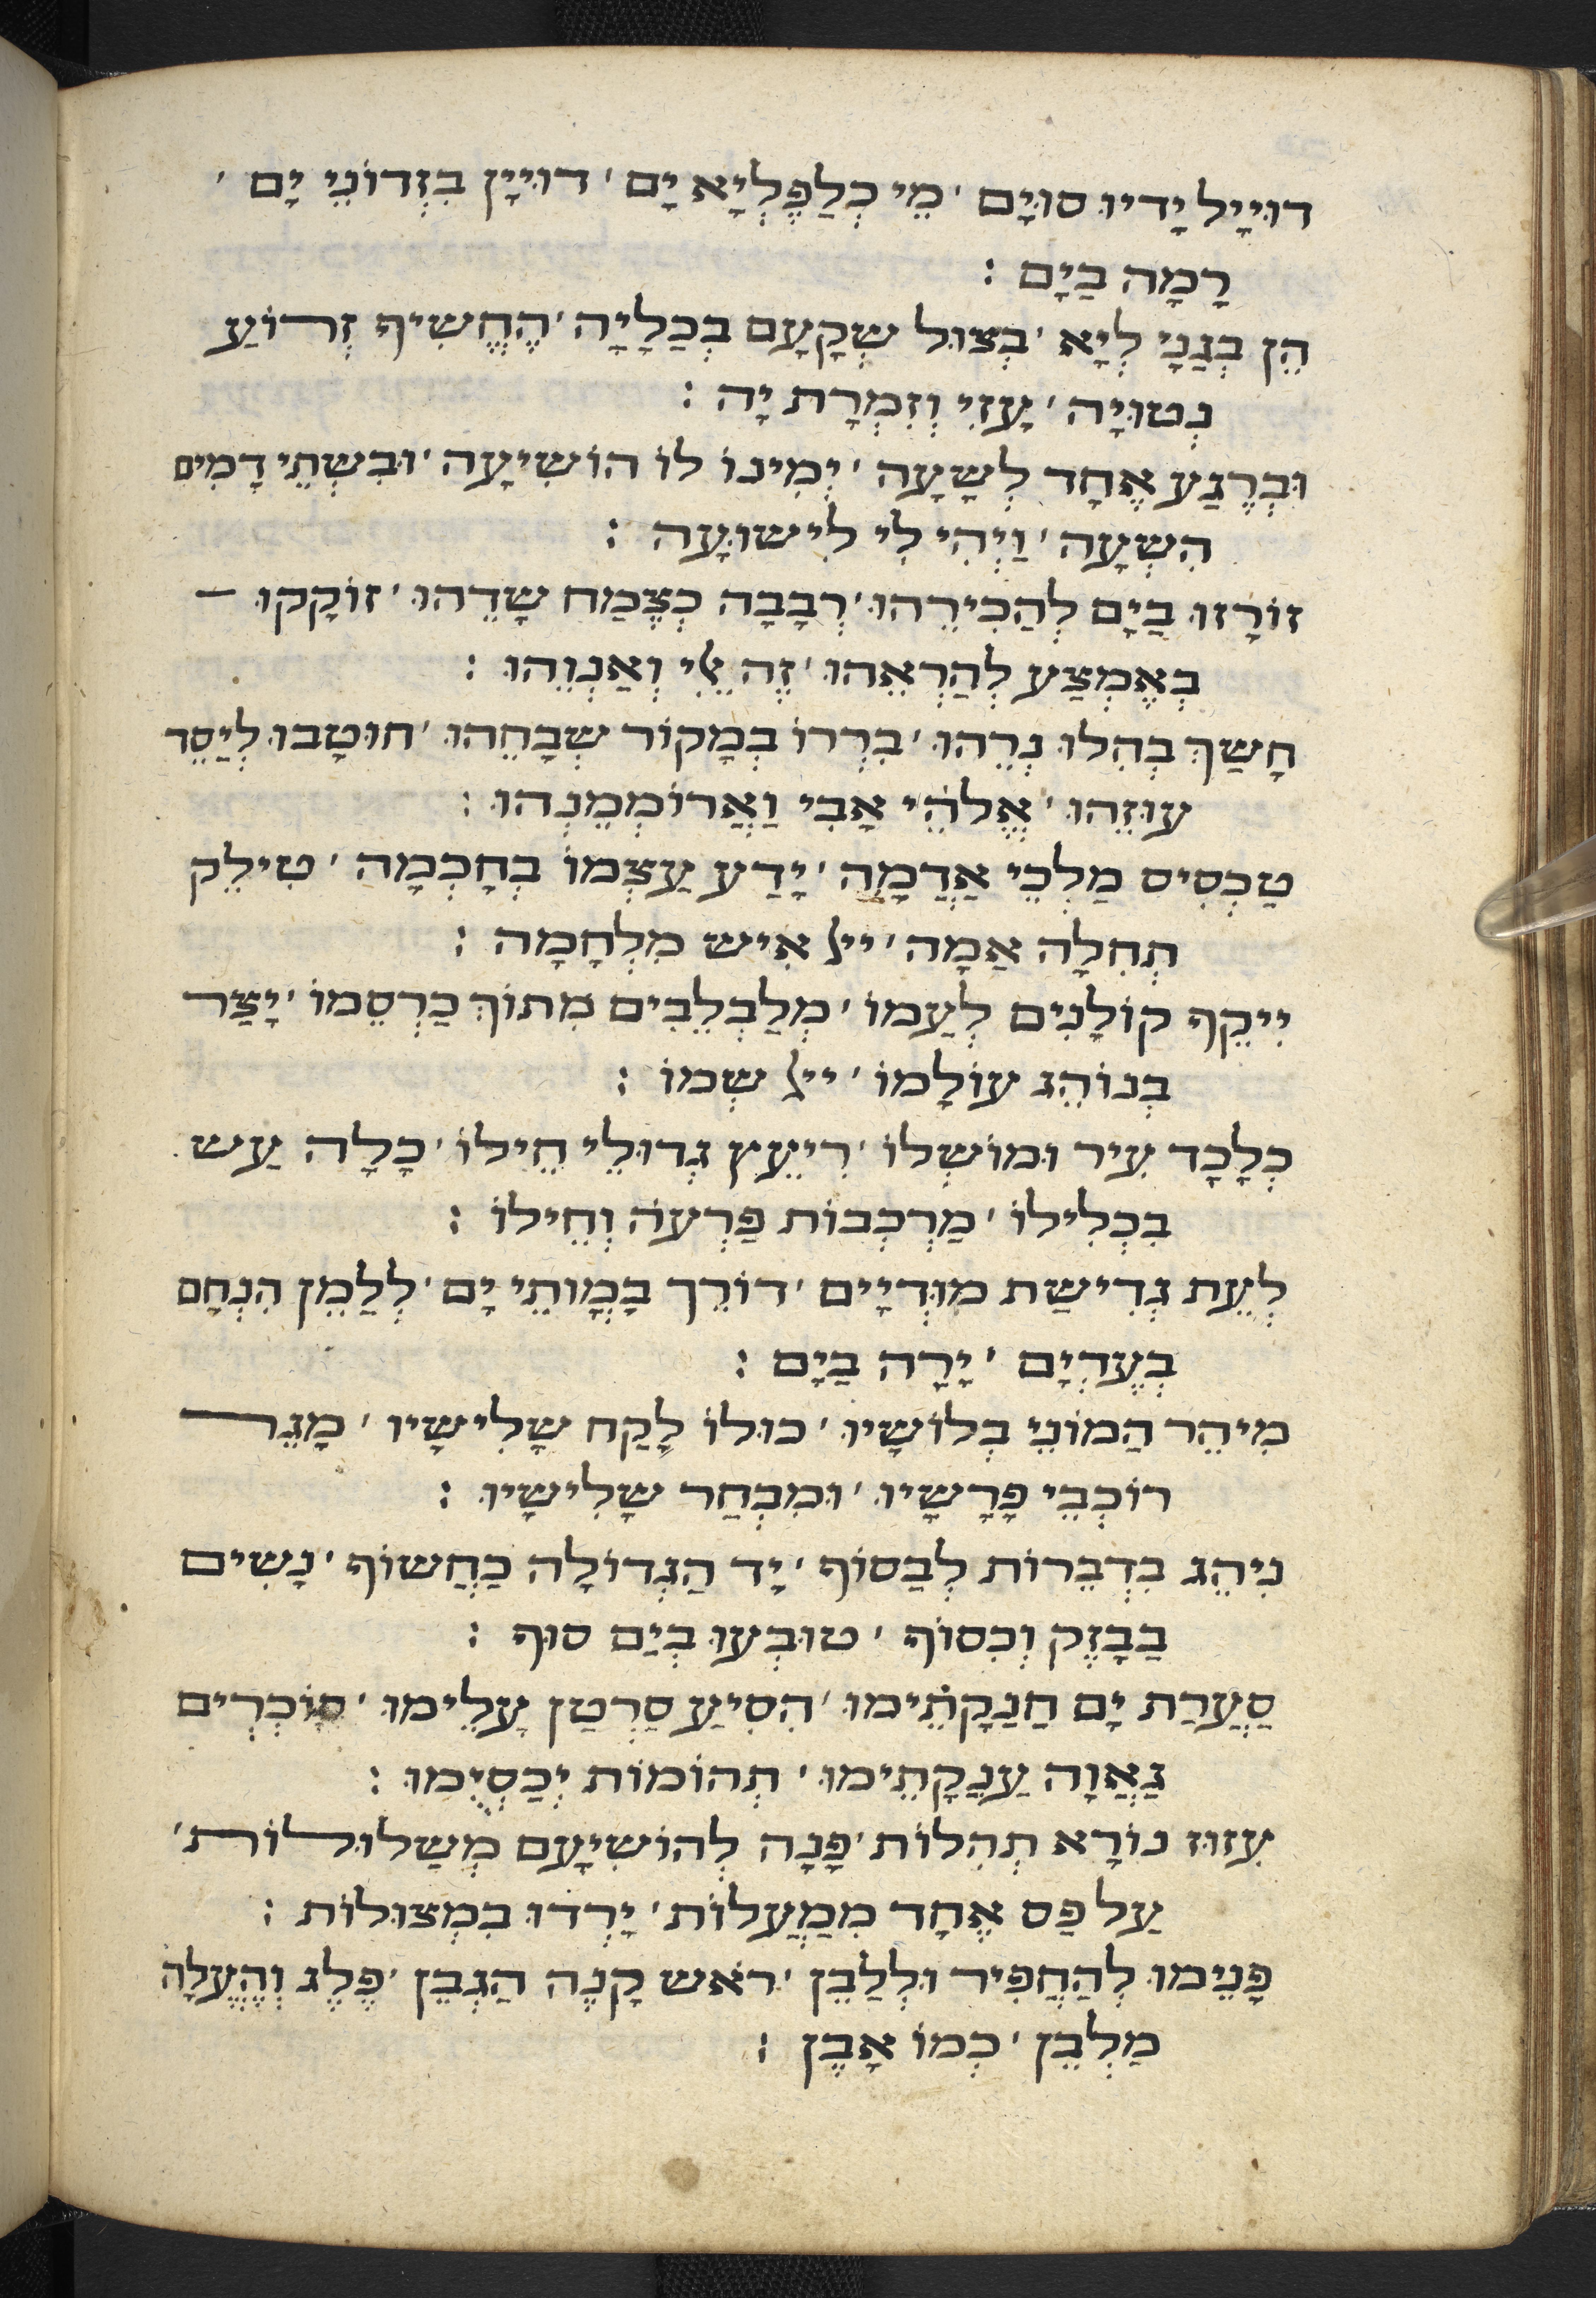 דוּיָיל יָדָיו סוּיָם ׳ מֵי כְלַפֶּלְיָא יָם ׳ דוּיָין בִזְדוֹנֵי יָם ׳
רָמָה בַיָם :
הֵן בְגַנָי לְיָא ׳ בְצוּל שְקָעָם בְכַלָיָה ׳ הֶחֱשִיף זְרוֹעַ
נְטוּיָה ׳ עָזִי וְזִמְרָת יָה :
וּבְרֶגַע אֶחָד לְשָעָה ׳ יְמִינוֹ לוֹ הוֹשִיעָה ׳ וּבִשְתֵי דָמִים
הִשְעָה ׳ וַיְהִי לִי לִישוּעָה :
זוֹרָזוּ בַיָם לְהַכִירֵהוּ ׳ רְבָבָה כְצֶמַח שָדֵהוּ ׳ זוֹקָקוּ –
בְאֶמְצַע לְהַרְאֵהוּ ׳ זֶה אֵלִי וְאַנְוֵהוּ :
חָשַךְ בְהִלוּ נְרֵהוּ ׳ בִרְרוֹ בְמָקוֹר שְבָחֵהוּ ׳ חוּטָבוּ לְיַסֵד
עוּזֵהוּ ׳ אֱלֹהֵי אָבִי וַאֲרוֹמְמֵנְהוּ :
טַכְסִיס מַלְכֵי אֲדָמָה ׳ יָדַע עַצְמוֹ בְחָכְמָה ׳ טִילֵק
תְחִלָה אַמָה ׳ ייל אִיש מִלְחָמָה :
יִיקֵף קוֹלָנִים לְעַמוֹ ׳ מְלַבְלֵבִים מִתוֹךְ כַרְסֵמוֹ ׳ יָצַר
בְנוֹהֵג עוֹלָמוֹ ׳ ייל שְמוֹ :
כְלָכָד עִיר וּמוֹשְלוֹ ׳ רִיעֵץ גְדוּלֵי חֵילוֹ ׳ כָלָה עַש
בִכְלִילוֹ ׳ מַרְכְבוֹת פַרְעֹה וְחֵילוֹ :
לְעֵת גְדִישַת מוּדְיָיִם ׳ דוֹרֵך בָמֳותֵי יָם ׳ לְלַמֵן הִנְחָם
בְעֶדְיָם ׳ יָרָה בַיָם :
מִיהֵר הַמוֹנֵי בְלוֹשָיו ׳ כוּלוֹ לָקַח שָלִישָיו ׳ מָגֵר
רוֹכְבֵי פָרָשָיו ׳ וּמִבְחַר שָלִישָיו :
נִיהֵג בְדִבְרוֹת לְבַסוֹף ׳ יָד הַגְדוֹלָה כַחֲשוֹף ׳ נָשִים
בַבָזֶק וְכִסוֹף ׳ טוּבְעוּ בְיַם סוּף :
סַעֲרַת יָם חַנַקָתֵימוּ ׳ הִסִיעַ סַרְטַן עָלֵימוּ ׳ סוֹכְרִים
גַאֲוָה עַנָקָתֵימוּ ׳ תְהוֹמוֹת יְכַסְיֻמוּ :
עִזוּז נוֹרָא תְהִלוֹת ׳ פָנָה לְהוֹשִיעָם מְשַלוּלוֹת ׳
עַל פַס אֶחָד מִמַעֲלוֹת ׳ יָרְדוּ בִמְצוּלוֹת :
פָנֵימוּ לְהַחֲפִיר וּלְלַבֵן ׳ רֹאש קָנֶה הַגְבֵן ׳ פֶלֶג וְהֶעֱלָה
מַלְבֵן ׳ כְמוֹ אָבֶן :